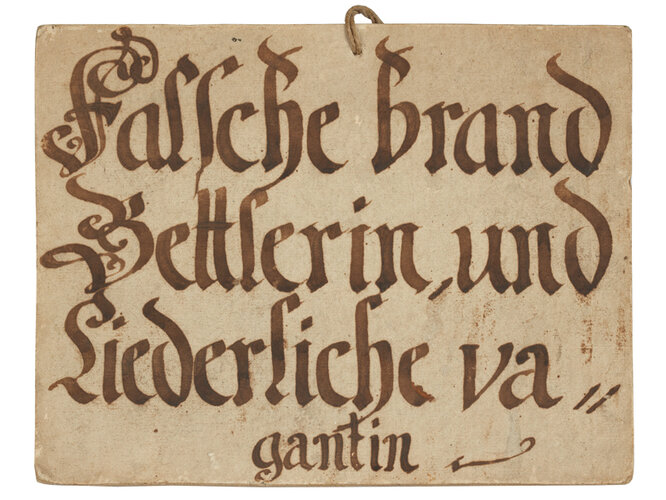 Falsche brand
Bettlerin, und
Liederliche va〃
gantin